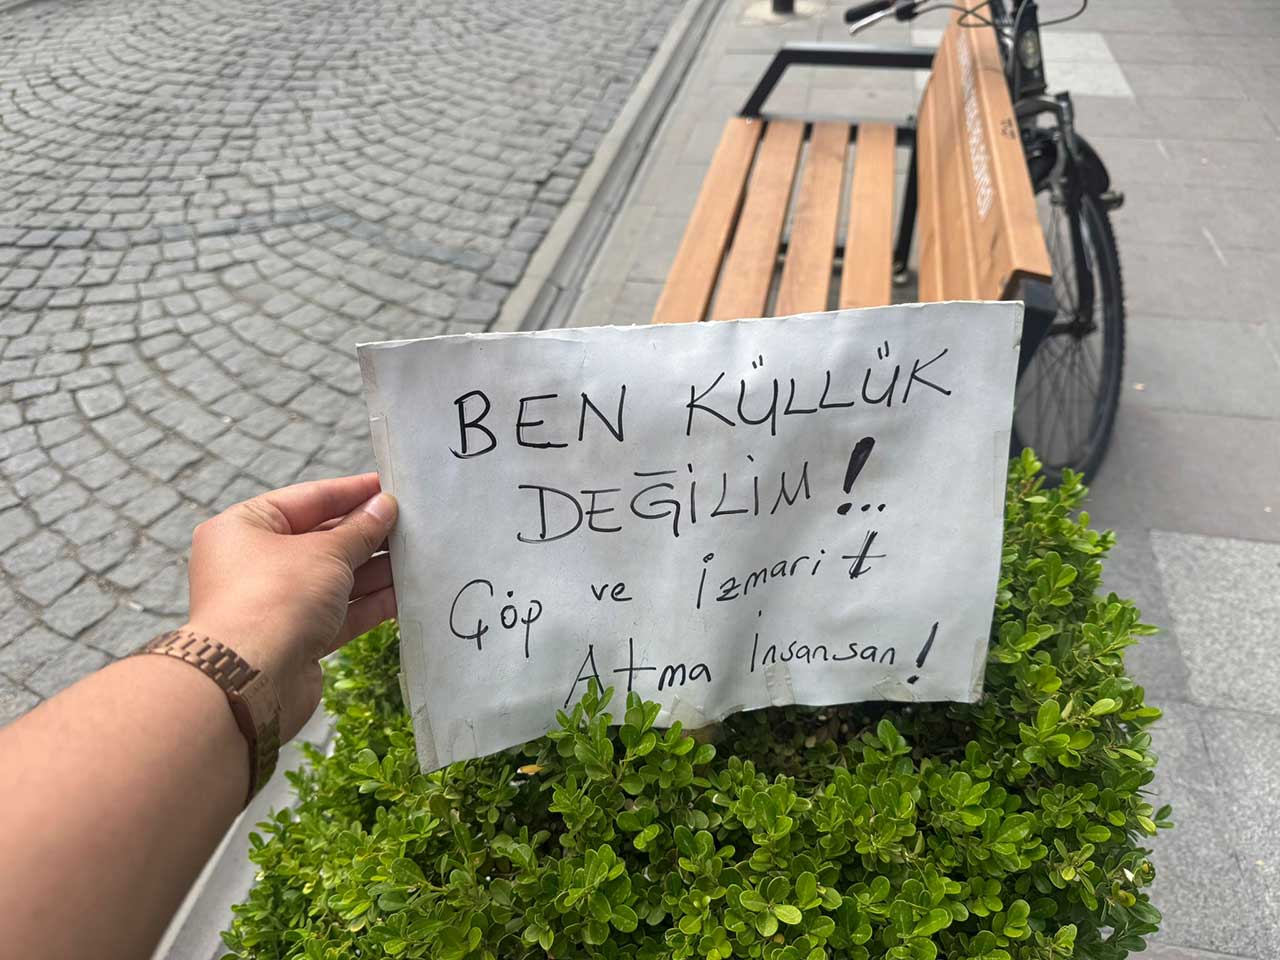 BEN KÜLLÜK
DEĞİLİM!...
Çöp ve İzmarit
Atma İnsansan!